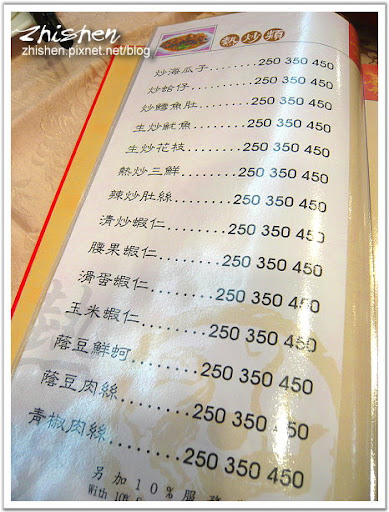 Zhishen
zhishen.pixnet.net/blog
熱炒類
炒海瓜子.........250 350 450
炒蛤仔.........250 350 450
炒鱈魚肚.........250 350 450
生炒魷魚.........250 350 450
生炒花枝.........250 350 450
熱炒三鮮.........250 350 450
辣炒肚絲.........250 350 450
清炒蝦仁.........250 350 450
腰果蝦仁.........250 350 450
滑蛋蝦仁.........250 350 450
玉米蝦仁.........250 350 450
蔭豆鮮蚵.........250 350 450
蔭豆肉絲.........250 350 450
青椒肉絲.........250 350 450
另加10%服務
With 10%